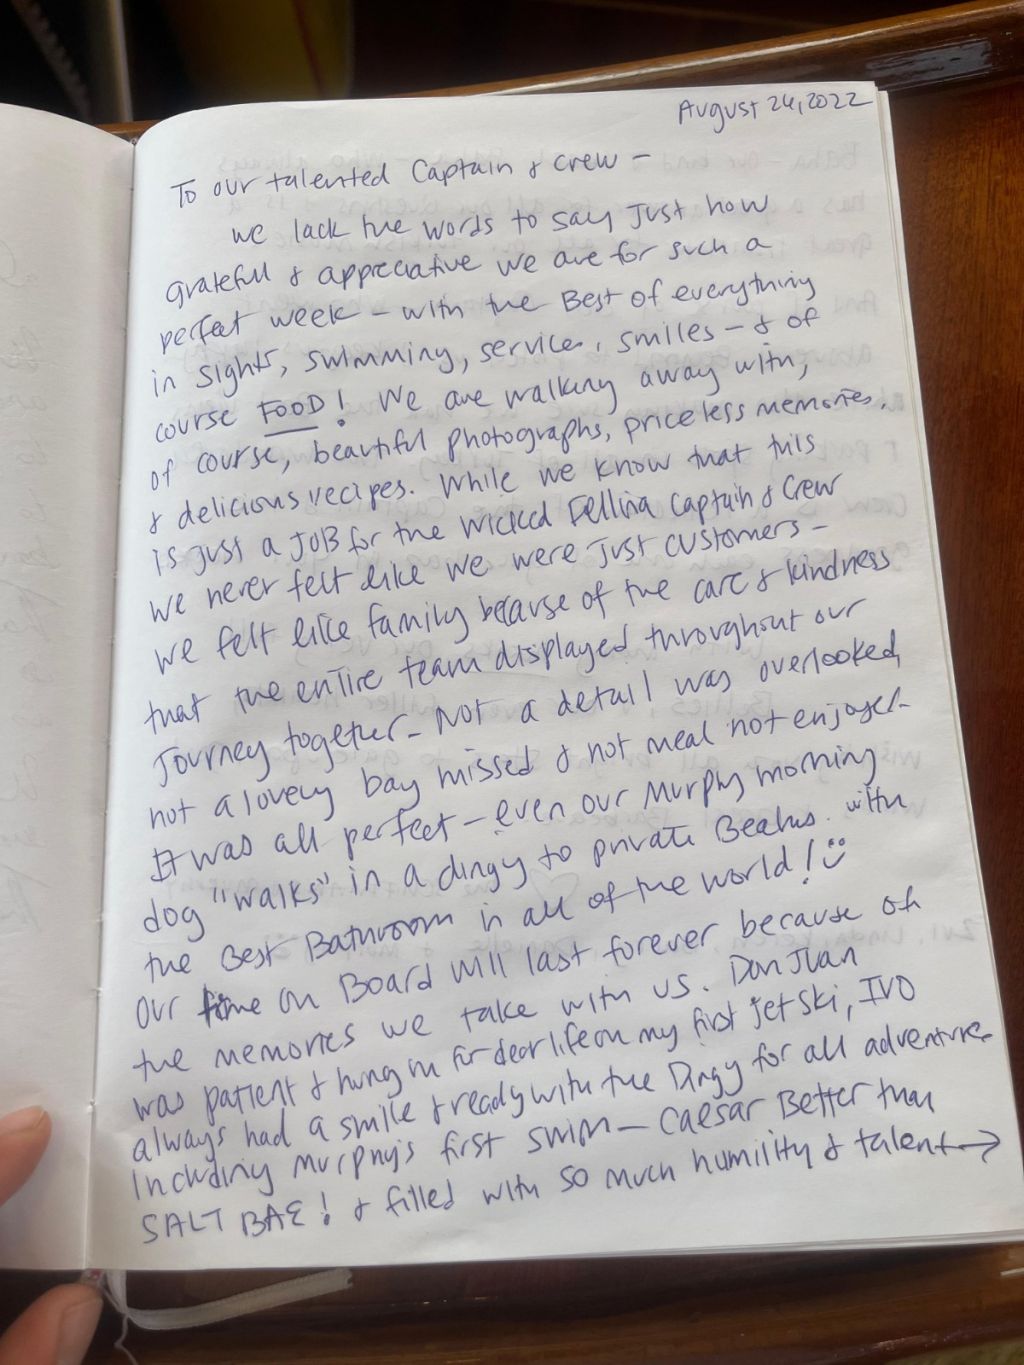 August 24, 2022
To our talented Captain & crew –
we lack the words to say just how
grateful & appreciative we are for such a
perfect week – with the Best of everything
in sights, swimming, service, smiles – & of
course FOOD! We are walking away with,
of course, beautiful photographs, priceless memories,
& delicious recipes. While we know that this
is just a JOB for the Wicked Fellina Captain & Crew
we never felt like we were just customers –
we felt like family because of the care & kindness
that the entire team displayed throughout our
Journey together – Not a detail was overlooked,
not a lovely bay missed & not meal not enjoyed –
It was all perfect – even our Murphy morning
dog "walks" in a dingy to private Beachs. with
the Best Bathroom in all of the world!
Our time on Board will last forever because of
the memories we take with us. Don Juan
was patient & hung on for dear life on my first jet ski, IVO
always had a smile & ready with the Dingy for all adventures
Including Murphy's first swim – Caesar Better than
SALT BAE! & filled with so much humility & talent →